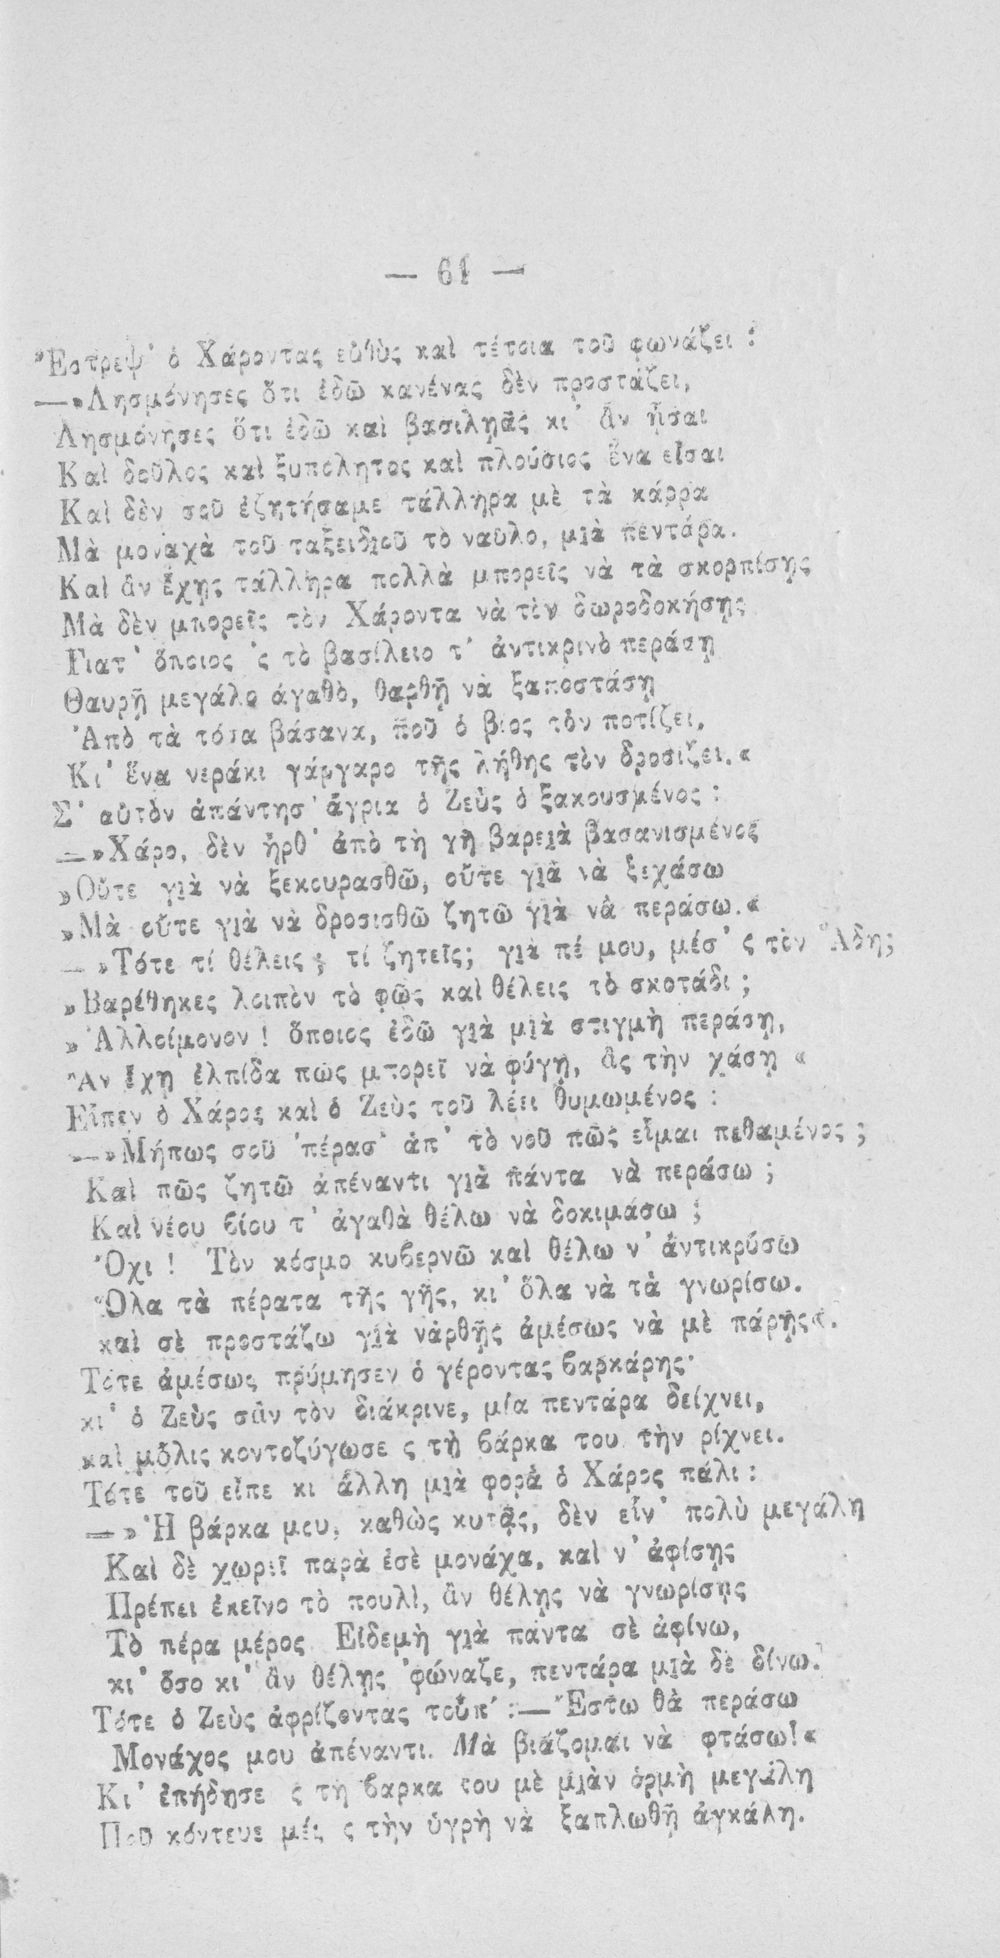 — 61 —
Ἔστρεψ' ὁ Χάροντας εὐθὺς καὶ τέτοια τοῦ φωνάζει :
—»Λησμόνησες ὅτι ἐδῶ κανένας δὲν προστάζει,
Λησμόνησες ὅτι ἐδῶ καὶ βασιληᾶς κι' ἂν ἦσαι
Καὶ δοῦλος καὶ ξυπόλητος καὶ πλούσιος ἕνα εἶσαι
Καὶ δὲν σοῦ ἐζητήσαμε τάλληρα μὲ τὰ κάρρα
Μὰ μοναχὰ τοῦ ταξειδιοῦ τὸ ναῦλο, μιὰ πεντάρα.
Καὶ ἂν ἔχῃς τάλληρα πολλὰ μπορεῖς νὰ τὰ σκορπίσῃς
Μὰ δὲν μπορεῖς τὸν Χάροντα νὰ τὸν δωροδοκήσῃς
Γιατ' ὅποιος 'ς τὸ βασίλειο τ' ἀντικρινὸ περάσῃ
Θαυρῇ μεγάλο ἀγαθὸ, θαρθῇ νὰ ξαποστάσῃ
Ἀπὸ τὰ τόσα βάσανα, ποῦ ὁ βίος τὸν ποτίζει,
Κι' ἕνα νεράκι γάργαρο τῆς λήθης τὸν δροσίζει.«
Σ' αὐτὸν ἀπάντησ' ἄγρια ὁ Ζεὺς ὁ ξακουσμένος :
—»Χάρο, δὲν ἦρθ' ἀπὸ τὴ γῆ βαρειὰ βασανισμένος
»Οὔτε γιὰ νὰ ξεκουρασθῶ, οὔτε γιὰ νὰ ξεχάσω
»Μὰ οὔτε γιὰ νὰ δροσισθῶ ζητῶ γιὰ νὰ περάσω.«
—»Τότε τί θέλεις ; τί ζητεῖς; γιὰ πέ μου, μέσ' ς τὸν Ἄδη;
»Βαρέθηκες λοιπὸν τὸ φῶς καὶ θέλεις τὸ σκοτάδι ;
»Ἀλλοίμονον ! ὅποιος ἐδῶ γιὰ μιὰ στιγμὴ περάσῃ,
Ἂν ἔχῃ ἐλπίδα πῶς μπορεῖ νὰ φύγῃ, ἂς τὴν χάσῃ «
Εἶπεν ὁ Χάρος καὶ ὁ Ζεὺς τοῦ λέει θυμωμένος :
—»Μήπως σοῦ 'πέρασ' ἀπ' τὸ νοῦ πῶς εἶμαι πεθαμένος ;
Καὶ πῶς ζητῶ ἀπέναντι γιὰ πάντα νὰ περάσω ;
Καὶ νέου βίου τ' ἀγαθὰ θέλω νὰ δοκιμάσω ;
Ὄχι ! Τὸν κόσμο κυβερνῶ καὶ θέλω ν' ἀντικρύσω
Ὅλα τὰ πέρατα τῆς γῆς, κι' ὅλα νὰ τὰ γνωρίσω.
καὶ σὲ προστάζω γιὰ νάρθῃς ἀμέσως νὰ μὲ πάρῃς«.
Τότε ἀμέσως πρύμησεν ὁ γέροντας βαρκάρης·
κι' ὁ Ζεὺς σὰν τὸν διάκρινε, μία πεντάρα δείχνει,
καὶ μόλις κοντοζύγωσε ς τὴ βάρκα του τὴν ρίχνει.
Τότε τοῦ εἶπε κι ἄλλη μιὰ φορὰ ὁ Χάρος πάλι :
—»Ἡ βάρκα μου, καθὼς κυτᾷς, δὲν εἶν' πολὺ μεγάλη
Καὶ δὲ χωρεῖ παρὰ ἐσὲ μονάχα, καὶ ν' ἀφίσῃς
Πρέπει ἐκεῖνο τὸ πουλὶ, ἂν θέλῃς νὰ γνωρίσῃς
Τὸ πέρα μέρος Εἰδεμὴ γιὰ πάντα σὲ ἀφίνω,
κι' ὅσο κι' ἂν θέλῃς 'φώναζε, πεντάρα μιὰ δὲ δίνω.
Τότε ὁ Ζεὺς ἀφρίζοντας τοῦπ' :—Ἔστω θὰ περάσω
Μονάχος μου ἀπέναντι. Μὰ βιάζομαι νὰ φτάσω!«
Κι' ἐπήδησε ς τὴ βαρκα του μὲ μιὰν ὁρμὴ μεγάλη
Ποῦ κόντευε μές ς τὴν ὑγρὴ νὰ ξαπλωθῇ ἀγκάλη.